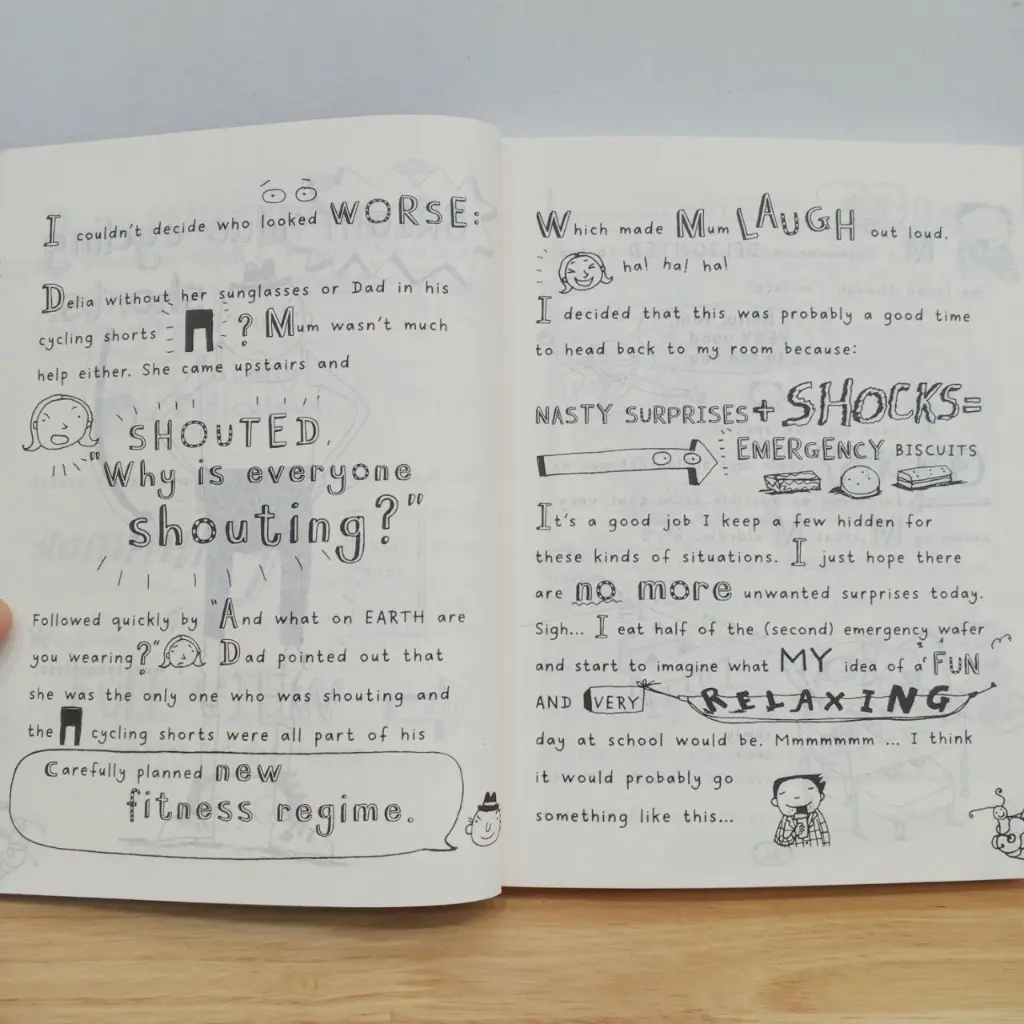 I couldn't decide who looked WORSE:
Delia without her sunglasses or Dad in his
cycling shorts ? Mum wasn't much
help either. She came upstairs and
SHOUTED,
"Why is everyone
shouting?"
Followed quickly by "And what on EARTH are
you wearing?" Dad pointed out that
she was the only one who was shouting and
the cycling shorts were all part of his
Carefully planned new
fitness regime.
Which made Mum LAUGH out loud.
ha! ha! ha!
I decided that this was probably a good time
to head back to my room because:
NASTY SURPRISES + SHOCKS =
EMERGENCY BISCUITS
It's a good job I keep a few hidden for
these kinds of situations. I just hope there
are no more unwanted surprises today.
Sigh... I eat half of the (second) emergency wafer
and start to imagine what MY idea of a FUN
AND VERY RELAXING
day at school would be. Mmmmmmm ... I think
it would probably go
something like this...